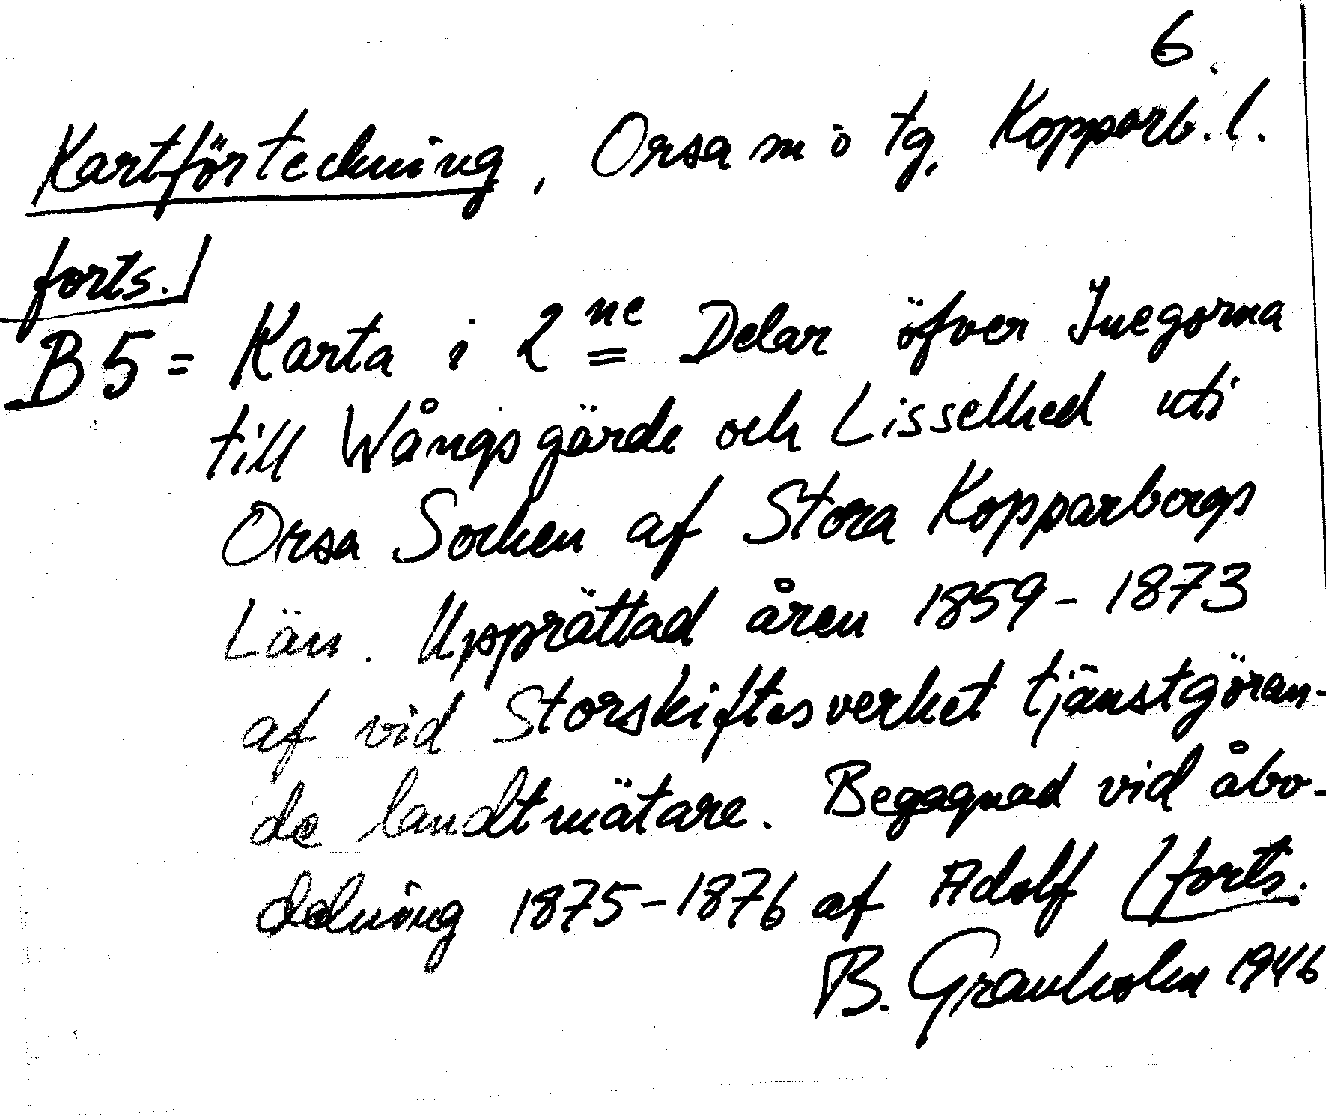 6.
Kartförteckning, Orsa m o tg, Kopparb. l.
forts.
B5 = Karta i 2 ne Delar öfver Inegorna
till Wångsgärde och Lisselhed uti
Orsa Socken af Stora Kopparbergs
Län. Upprättad åren 1859-1873
af vid Storskiftesverket tjänstgöran-
de landtmätare. Begagnad vid åbo-
delning 1875-1876 af Adolf (forts.
B. Granholm 1946